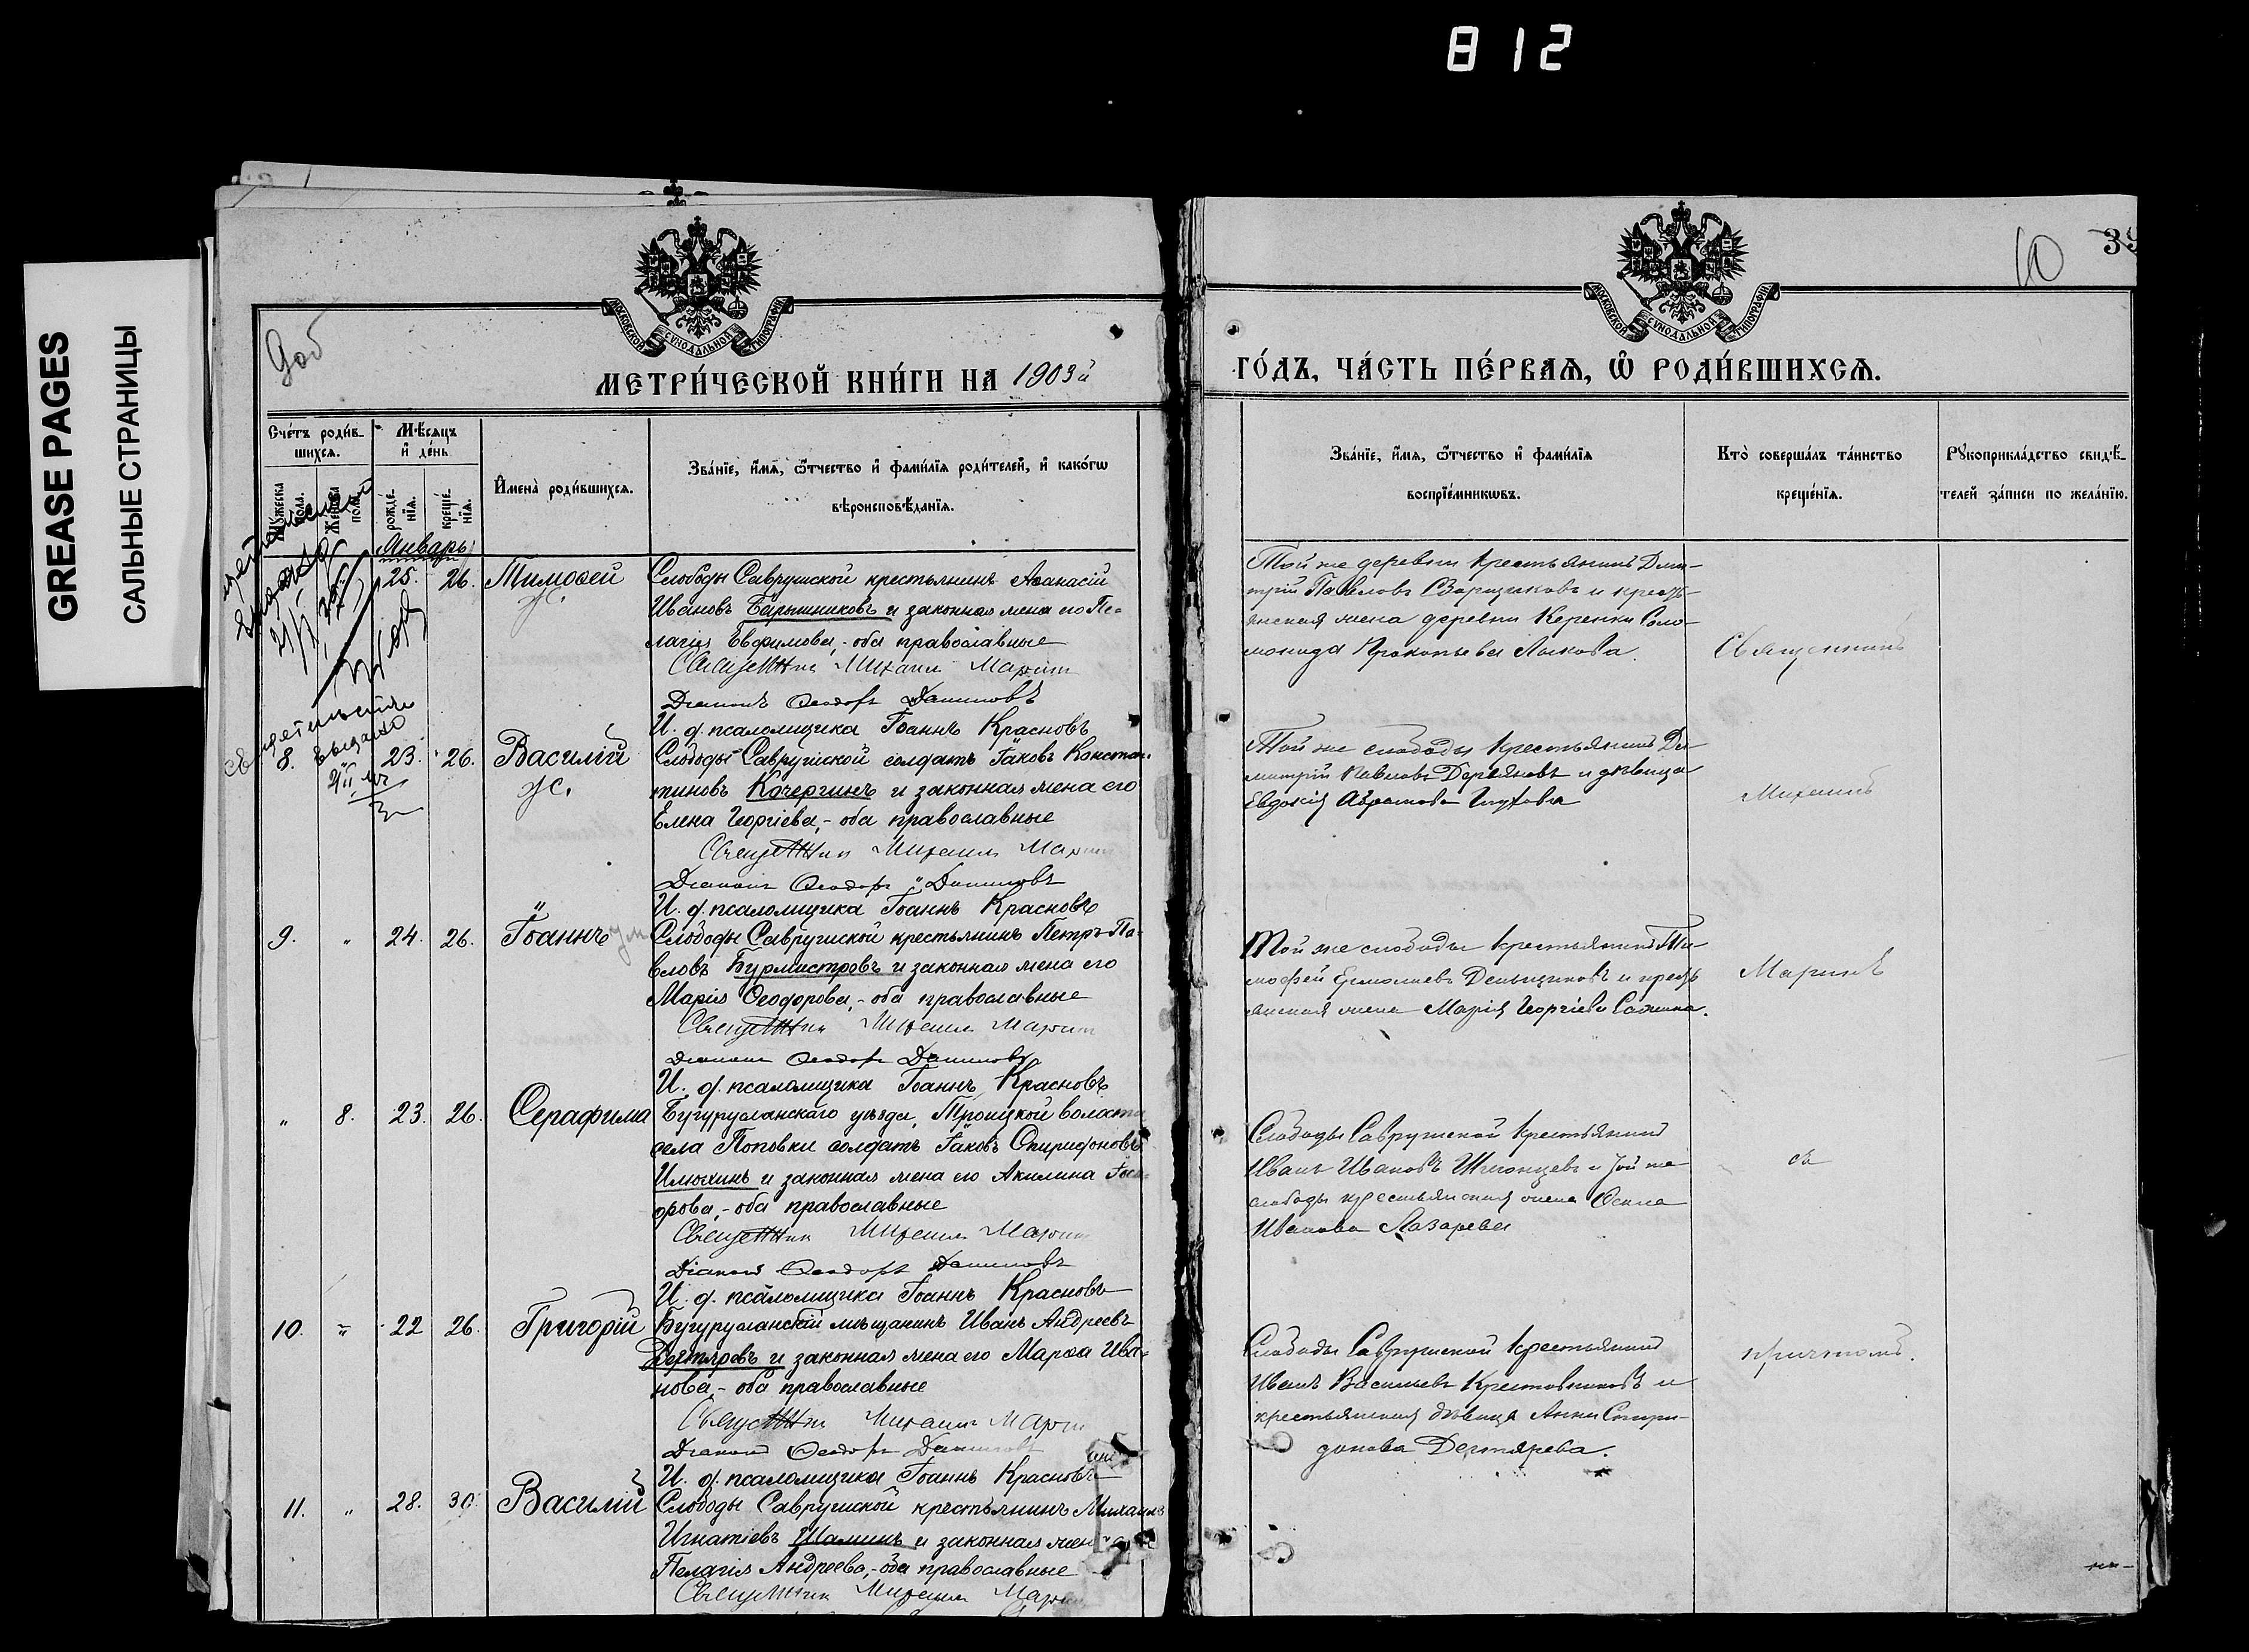 812
GREASE PAGES
САЛЬНЫЕ СТРАНИЦЫ
10
МОСКОВСКОЙ СУНОДАЛЬНОЙ ТИПОГРАФІИ
МОСКОВСКОЙ СУНОДАЛЬНОЙ ТИПОГРАФІИ
МЕТРИ́ЧЕСКОЙ КНИ́ГИ НА 1903й
ГО́ДЪ, ЧА́СТЬ ПЕ́РВАѦ, Ѡ҆ РОДИ́ВШИХСѦ.
Счётъ роди́в-
шихсѧ.
Мѣ́сѧцъ
и҆ де́нь
Мꙋ́жеска пола.
Же́нска пола.
рожде́-
нїѧ.
креще́-
нїѧ.
И҆мена̀ роди́вшихсѧ.
Зва́нїе, и҆́мѧ, ѻ҆́тчество и҆ фами́лїѧ роди́телей, и҆ како́гѡ
вѣроисповѣ́данїѧ.
Зва́нїе, и҆́мѧ, ѻ҆́тчество и҆ фами́лїѧ
воспрїе́мникѡвъ.
Кто̀ соверша́лъ та́инство
креще́нїѧ.
Рꙋкоприкла́дство свидѣ́-
телей за́писи по жела́нїю.
Январь
25. 26. Тимоѳей
Слободы Саврушской крестьянинъ Аѳанасій
Ивановъ Барышниковъ и законная жена его Пе-
лагія Евфимова,- оба православные
Священникъ Михаилъ Маринъ
Діаконъ Ѳеодоръ Даниловъ
И. д. псаломщика Іоаннъ Красновъ
Той же деревни крестьянинъ Дми-
трій Павловъ и кресть-
янская жена деревни Керенки Соло-
монида Прокопьева
Священникъ
8. 23. 26. Василій
Слободы Саврушской солдатъ Іаковъ Констан-
тиновъ Кочергинъ и законная жена его
Елена Георгіева,- оба православные
Священникъ Михаилъ Маринъ
Діаконъ Ѳеодоръ Даниловъ
И. д. псаломщика Іоаннъ Красновъ
Той же слободы крестьянинъ Ди-
митрій Павловъ и дѣвица
Евдокія
Михаилъ
9. " 24. 26. Іоаннъ
Слободы Саврушской крестьянинъ Петръ Па-
вловъ Бурмистровъ и законная жена его
Марія Ѳеодорова,- оба православные
Священникъ Михаилъ Маринъ
Діаконъ Ѳеодоръ Даниловъ
И. д. псаломщика Іоаннъ Красновъ
Той же слободы крестьянинъ Ти-
мофей Ермолаевъ Деньщиковъ и кресть-
янская жена Марія Георгіева
Маринъ
" 8. 23. 26. Серафима
Бугурусланскаго уѣзда, Троицкой волости
села Поповки солдатъ Іаковъ Спиридоновъ
Илюхинъ и законная жена его Акилина
орова,- оба православные
Священникъ Михаилъ Маринъ
Діаконъ Ѳеодоръ Даниловъ
И. д. псаломщика Іоаннъ Красновъ
Слободы Саврушской крестьянинъ
Иванъ Ивановъ и той же
слободы крестьянская жена
Иванова Лазарева
съ
10. " 22 26. Григорій
Бугурусланскій мѣщанинъ Иванъ Андреевъ
Дегтяревъ и законная жена его Марѳа Ива-
нова,- оба православные
Священникъ Михаилъ Маринъ
Діаконъ Ѳеодоръ Даниловъ
И. д. псаломщика Іоаннъ Красновъ
Слободы Саврушской крестьянинъ
Иванъ Васильевъ Крестовниковъ и
крестьянская дѣвица Анна Спири-
донова Дегтярева.
причтомъ.
11. " 28. 30. Василій
Слободы Саврушской крестьянинъ Михаилъ
Игнатіевъ Шаминъ и законная жена его
Пелагія Андреева,- оба православные
Священникъ Михаилъ Маринъ